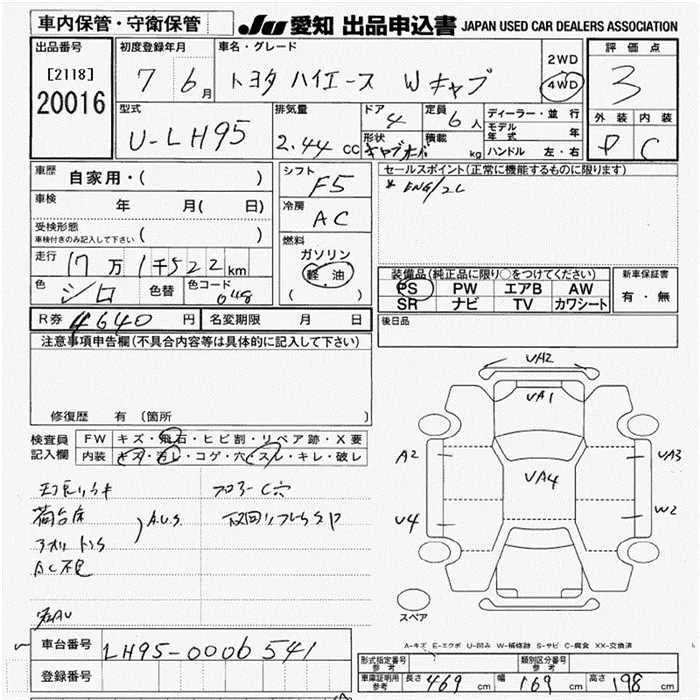 車内保管・守衛保管
JU 愛知 出品申込書 JAPAN USED CAR DEALERS ASSOCIATION
出品番号
[2118]
20016
初度登録年月
7 6月
車名・グレード
トヨタ ハイエース Wキャブ
2WD
4WD
評価点
3
型式
U-LH95
排気量
2.44 cc
ドア
4
定員
6人
形状
積載
kg
ディーラー・並行
モデル年式 年
ハンドル 左・右
外装 内装
P C
車歴
自家用・( )
車検
年 月( 日)
受検形態
車検付きのみ記入して下さい ( )
走行
17万1千522km
色
シロ
色替
色コード
048
シフト
F5
冷房
AC
燃料
ガソリン
軽油
( )
セールスポイント(正常に機能するものに限ります)
* ENG/2L
装備品(純正品に限り○をつけてください)
PS PW エアB AW
SR ナビ TV カワシート
新車保証書
有・無
R券 4640円
名変期限 月 日
後日品
注意事項申告欄(不具合内容等は具体的に記入して下さい)
修復歴 有 (箇所
検査員記入欄
FW キズ・飛石・ヒビ割・リペア跡・X要
内装 キズ・汚レ・コゲ・穴・スレ・キレ・破レ
フロアーC穴
荷台床
A.U.S
アオリ
AC不足
UA2
UA1
A2
UA3
UA4
U4
W2
スペア
A-キズ E-エクボ U-凹み W-補修跡 S-サビ C-腐食 XX-交換済
車台番号
LH95-0006541
登録番号
形式指定番号
参考
類別区分番号
参考
車庫証明用
参考
長さ 469 cm
幅 169 cm
高さ 198 cm